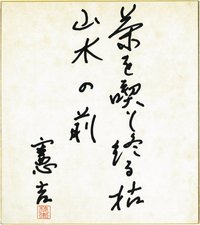 茶を喫し終る枯
山水の前
憲吉